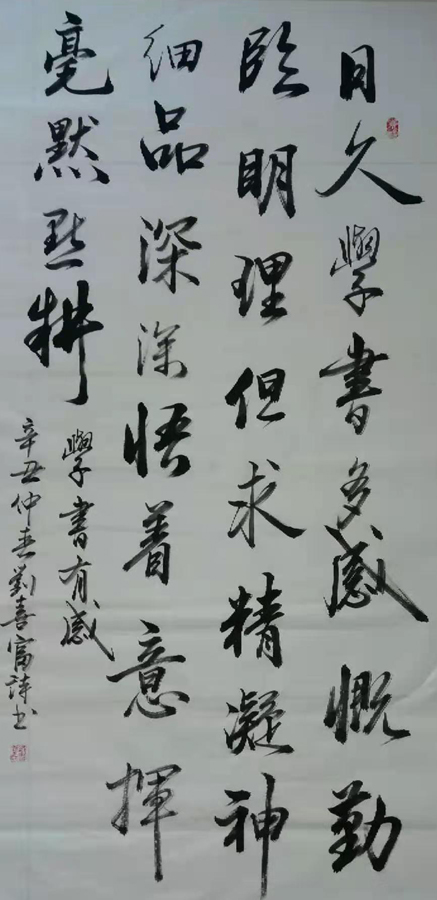 日久學書多感慨勤
臨明理但求精凝神
细品深深悟着意揮
毫默默耕
學書有感
辛丑仲春劉喜富詩书